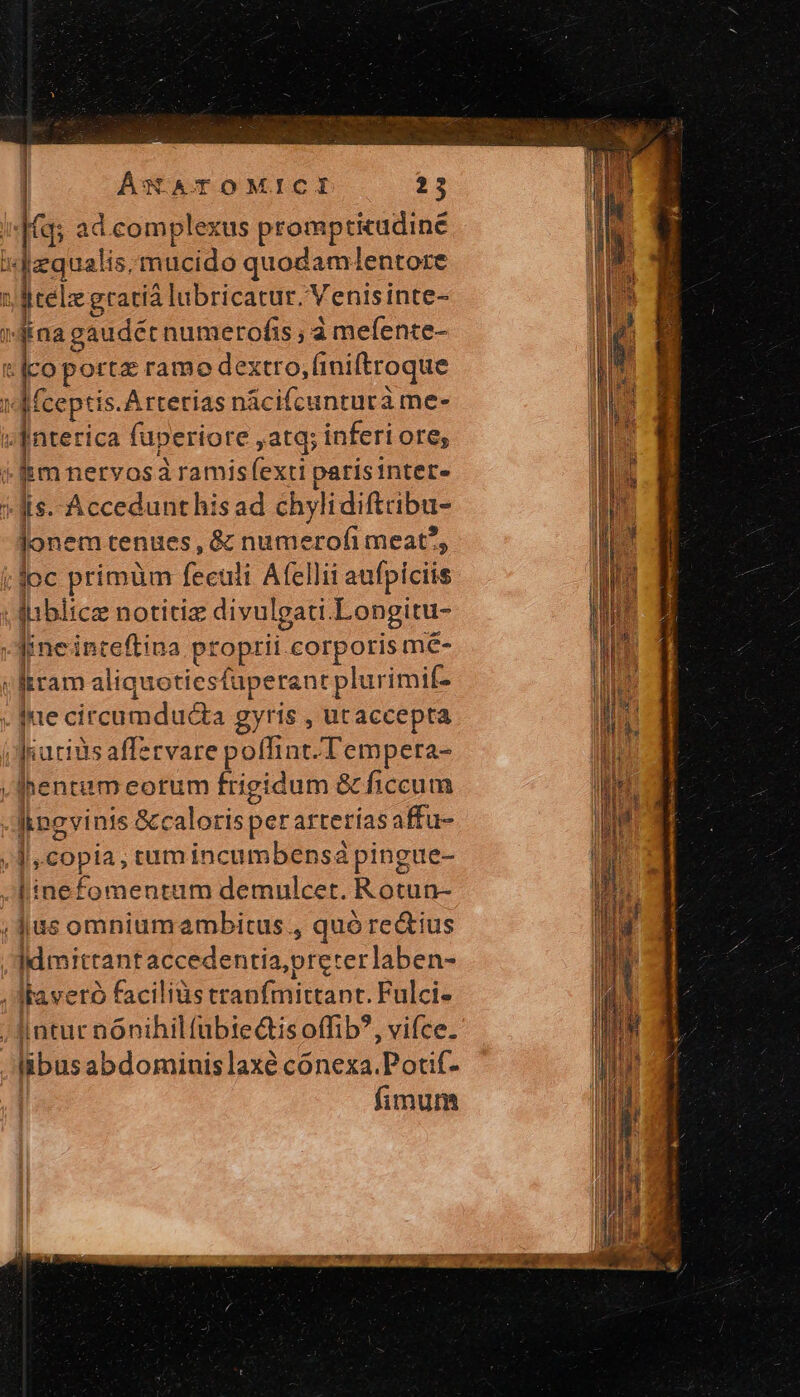 ANATOMICI 23
ſq; ad complexus promptitudinē
æqualis, mucido quodam lentore
telæ gratiâ lubricatur. Venis inte-
na gaudēt numeroſis, à meſente-
co portæ ramo dextro, ſiniſtroque
ſceptis. Arterias nāciſcuntur à me-
nterica ſuperiore, atq; inferi ore,
m nervos à ramis ſexti paris inter-
is. Accedunt his ad chyli diſtribu-
onem tenues, & numeroſi meat⁹,
oc primùm ſeculi Aſellii auſpiciis
ublicæ notitiæ divulgati. Longitu-
ine inteſtina proprii corporis mē-
ram aliquoties ſuperant plurimiſ-
ue circumducta gyris, ut accepta
iutiùs aſſervare poſſint. Tempera-
mentum eorum frigidum & ſiccum
ngvinis & caloris per arterias affu-
, copia, tum incumbens à pingue-
ine fomentum demulcet. Rotun-
us omnium ambitus, quò rectius
dmittant accedentia, preterlaben-
a verò faciliùs tranſmittant. Fulci-
ntur nōnihil ſubiectis oſſib⁹, viſce-
ibus abdominis laxè cōnexa. Potiſ-
ſimum